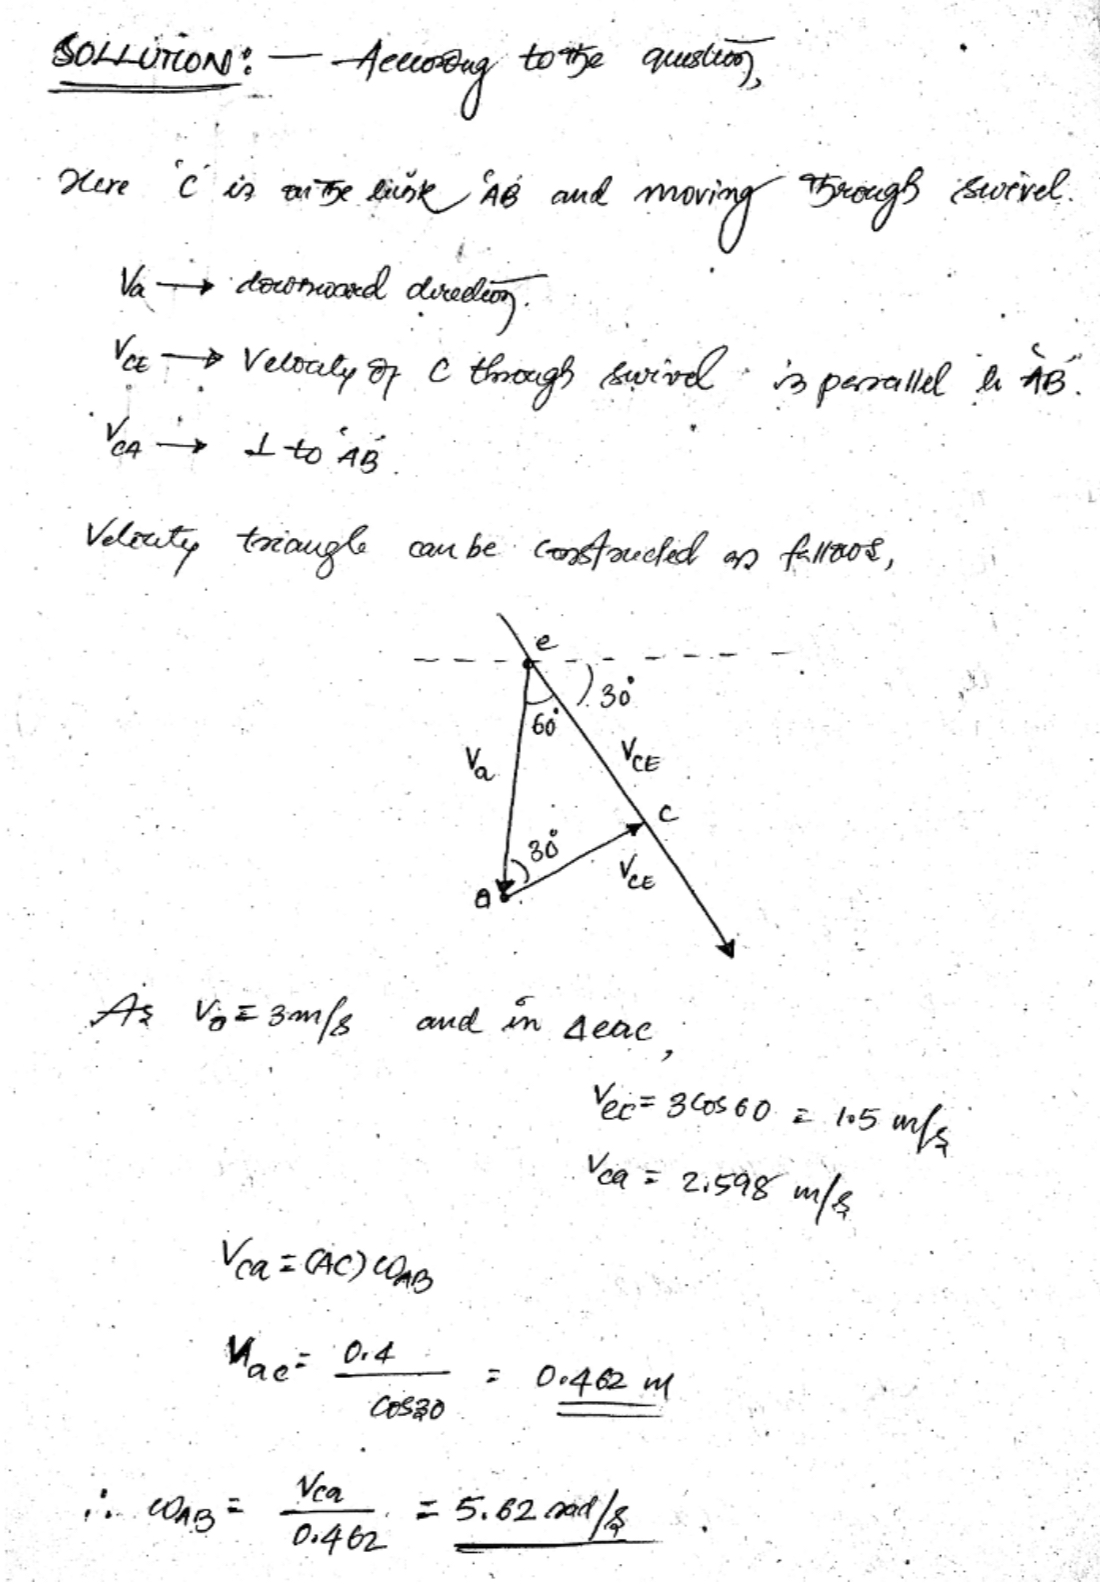 SOLLUTION:— According to the question,
Here 'C' is on the link 'AB' and moving through swivel.
Va → downward direction.
VCE → Velocity of C through swivel is parallel to 'AB'.
VCA → ⊥ to 'AB'.
Velocity triangle can be constructed as follows,
e
30°
60°
Va
VCE
C
30°
VCE
a
As Va = 3m/s and in Δeac,
Vec = 3cos60 = 1.5 m/s
Vca = 2.598 m/s
Vca = (AC) ωAB
ac = 0.4 / cos30 = 0.462 m
∴ ωAB = Vca / 0.462 = 5.62 rad/s.